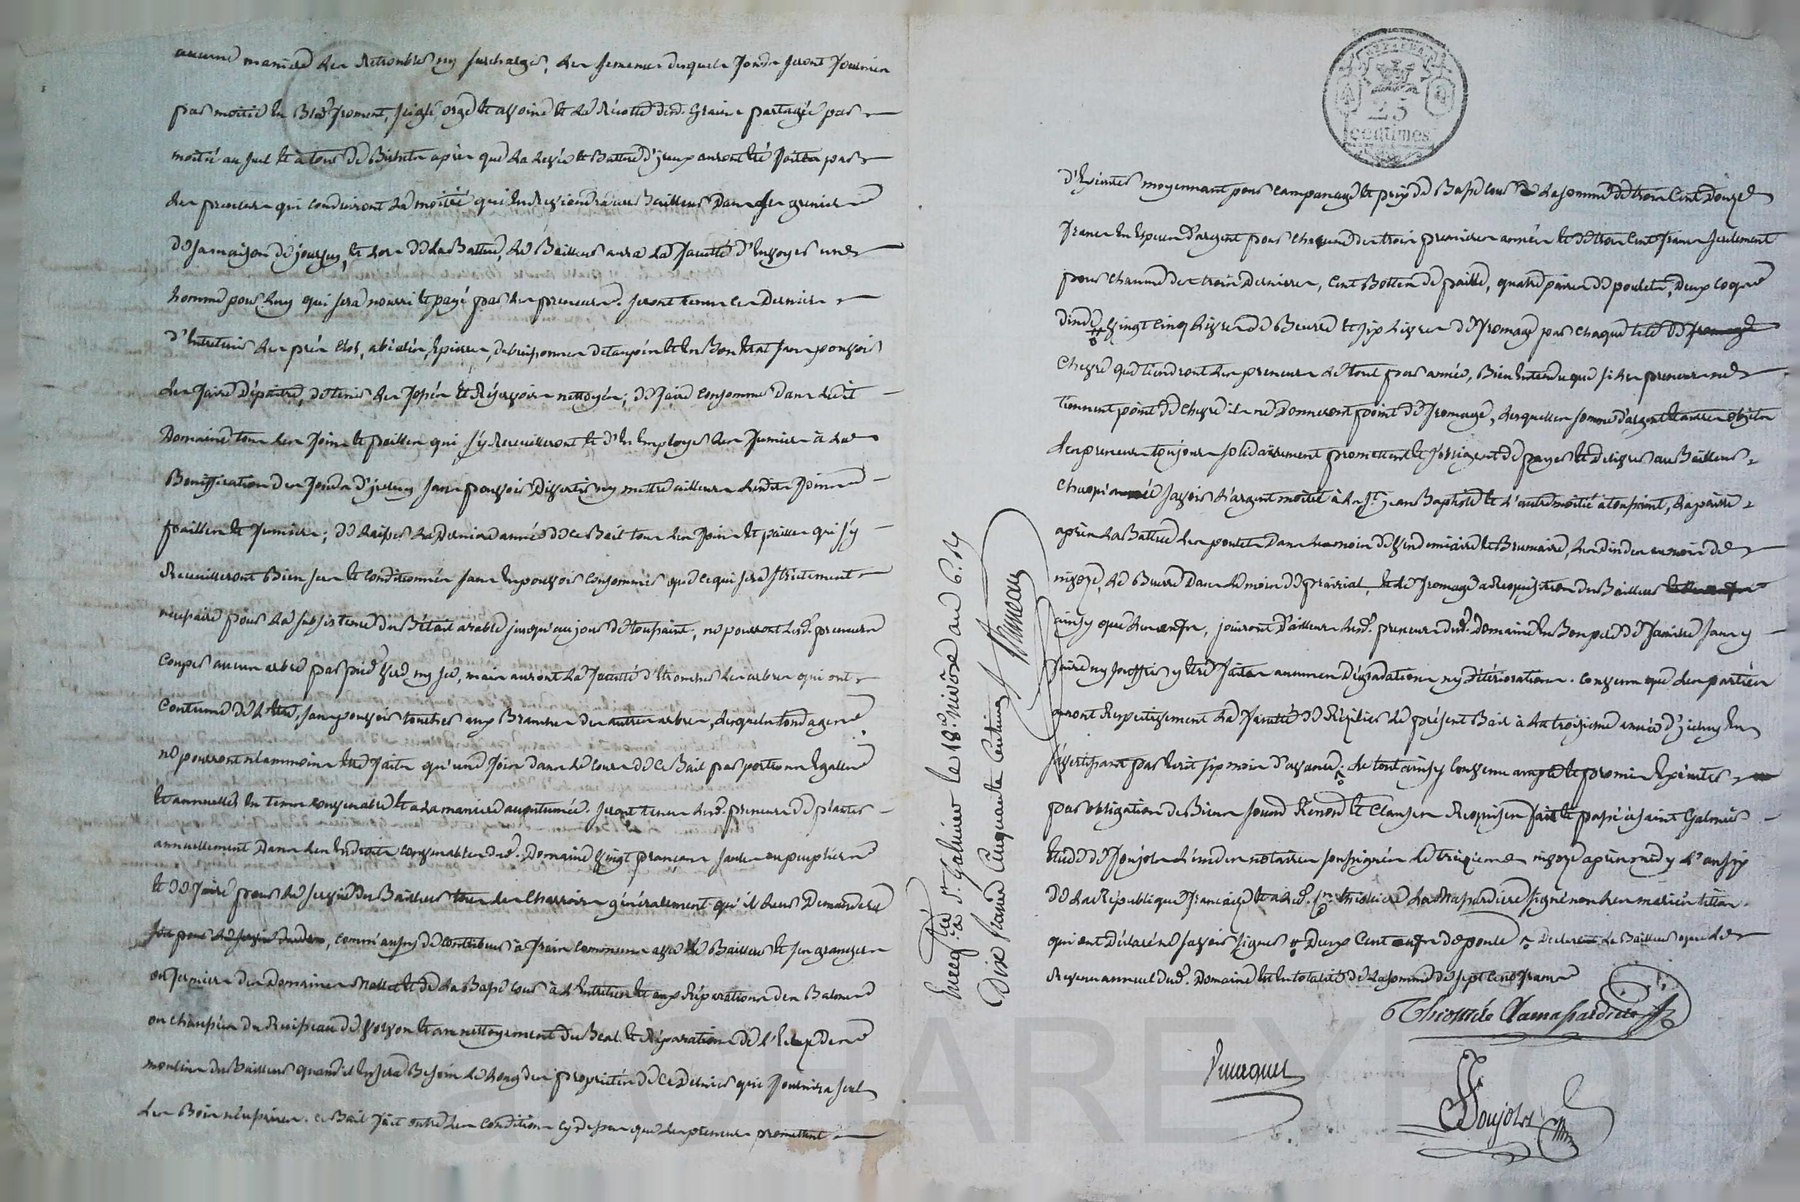 aucune maniere les retroubles ny surcharger, les semences desquels fonds seront fournies
par moitié en Bled froment, seigle, orge et avoine et la récolte desd. Grains partagée par
moitié au sol et à tour de Bichets après que la levée et Batture d'iceux auront été faites par
les preneurs qui conduiront la moitié qui en reviendra au Bailleur dans les greniers
de sa maison de et lors de la Batture, le Bailleur aura la faculté d'envoyer un
homme pour luy qui sera nourri et payé par les preneurs. Seront tenus ces derniers
d'entretenir les prés clos, abiés, épierrés, debuissonnés détaupés et en Bon état sans pouvoir
les faire dépaitre, de tenir les fossés et Réservoirs nettoyés; de faire consommer dans ledit
Domaine tous les foins et pailles qui s'y recueilleront et d'en employer les fumiers à la
Bonification des fonds d'icelui sans pouvoir divertir ny mettre ailleurs lesdits foins
pailles et fumiers; de laisser la derniere année de ce Bail tous les foins et pailles qui s'y
recueilleront Bien secs et conditionnés sans en pouvoir consommer que ce qui sera strictement
nécessaire pour la subsistance du Bétail arable jusqu'au jour de toussaint, ne pourront lesd. preneurs
couper aucun arbre par pied vert ny sec, mais auront la faculté d'étronner les arbres qui ont
coutume de l'être, sans pouvoir toucher aux Branches des autres arbres, lesquels tondages
ne pourront néammoins être faits qu'une fois dans le cours de ce Bail par portions égales
et annuelles en tems convenable et à la maniere accoutumée. Seront tenus lesd. preneurs de planter
annuellement dans les endroits convenables dud. Domaine vingt plançons saules ou peupliers
et de faire pour le service du Bailleur tous les charrois généralement qu'il leur demandera
comm'aussy de contribuer à frais communs avec le Bailleur et ses grangers
ou fermiers des Domaines et de la Basse cour à l'entretien et aux Réparations des
ou chaussées du Ruisseau de et au nettoyement du Beal et Réparation de l'écluse des
moulins du Bailleur quand il en sera Besoin le long des propriétés de ce dernier qui fournira seul
les Bois nécessaires. ce Bail fait outre les conditions cy dessus que les preneurs promettent
25
centimes
d'exécuter moyennant pour campanage et prix de Basse cour la somme de trois cent douze
francs en espèces d'argent pour chacune des trois premieres années et de trois cent francs seulement
pour chacune des trois dernieres, cent Bottes de paille, quatre paires de poulets, deux coqs
dinde, vingt cinq livres de Beurre et six livres de fromage par chaque tête de
chevre que tiendront les preneurs le tout par année, Bien entendu que si les preneurs ne
tiennent point de chevre ils ne donneront point de fromage, lesquelles sommes d'argent et autres objets
les preneurs toujours solidairement promettent et s'obligent de payer et délivrer au Bailleur
chaque année savoir l'argent moitié à la St. Jean Baptiste et l'autre moitié à toussaint, la paille
après la Batture les poulets dans les mois de vendemiaire et Brumaire, les dindes au mois de
nivose, le Beurre dans le mois de prairial, et le fromage à requisition du Bailleur
ainsy que les œufs, jouiront d'ailleurs lesd. preneurs dud. Domaine en Bons peres de famille sans y
faire ny souffrir y être faites aucunes dégradations ny détériorations. convenu que les parties
auront respectivement la faculté de résilier le présent Bail à la troisieme année d'icelui en
s'avertissant par écrit six mois d'avance. le tout ainsy convenu accepté et promis exécuter
par obligation de Biens soumis Renon. et clauses Requises fait et passé à Saint Galmier
étude de Soujolas l'un des notaires soussignés le treizieme nivose après midy l'an six
de la République française et a led. Cn. Thiolliere La Massardiere signé non les mariés
qui ont déclaré ne savoir signer # deux cent œufs de poule declarant le Bailleur que le
revenu annuel dud. Domaine est en totalité de la somme de sept cent francs
Thiolliére Lamassardiere
Soujolas
Enreg.tré à St. Galmier le 18e. nivôse an 6.
Dix francs cinquante centimes